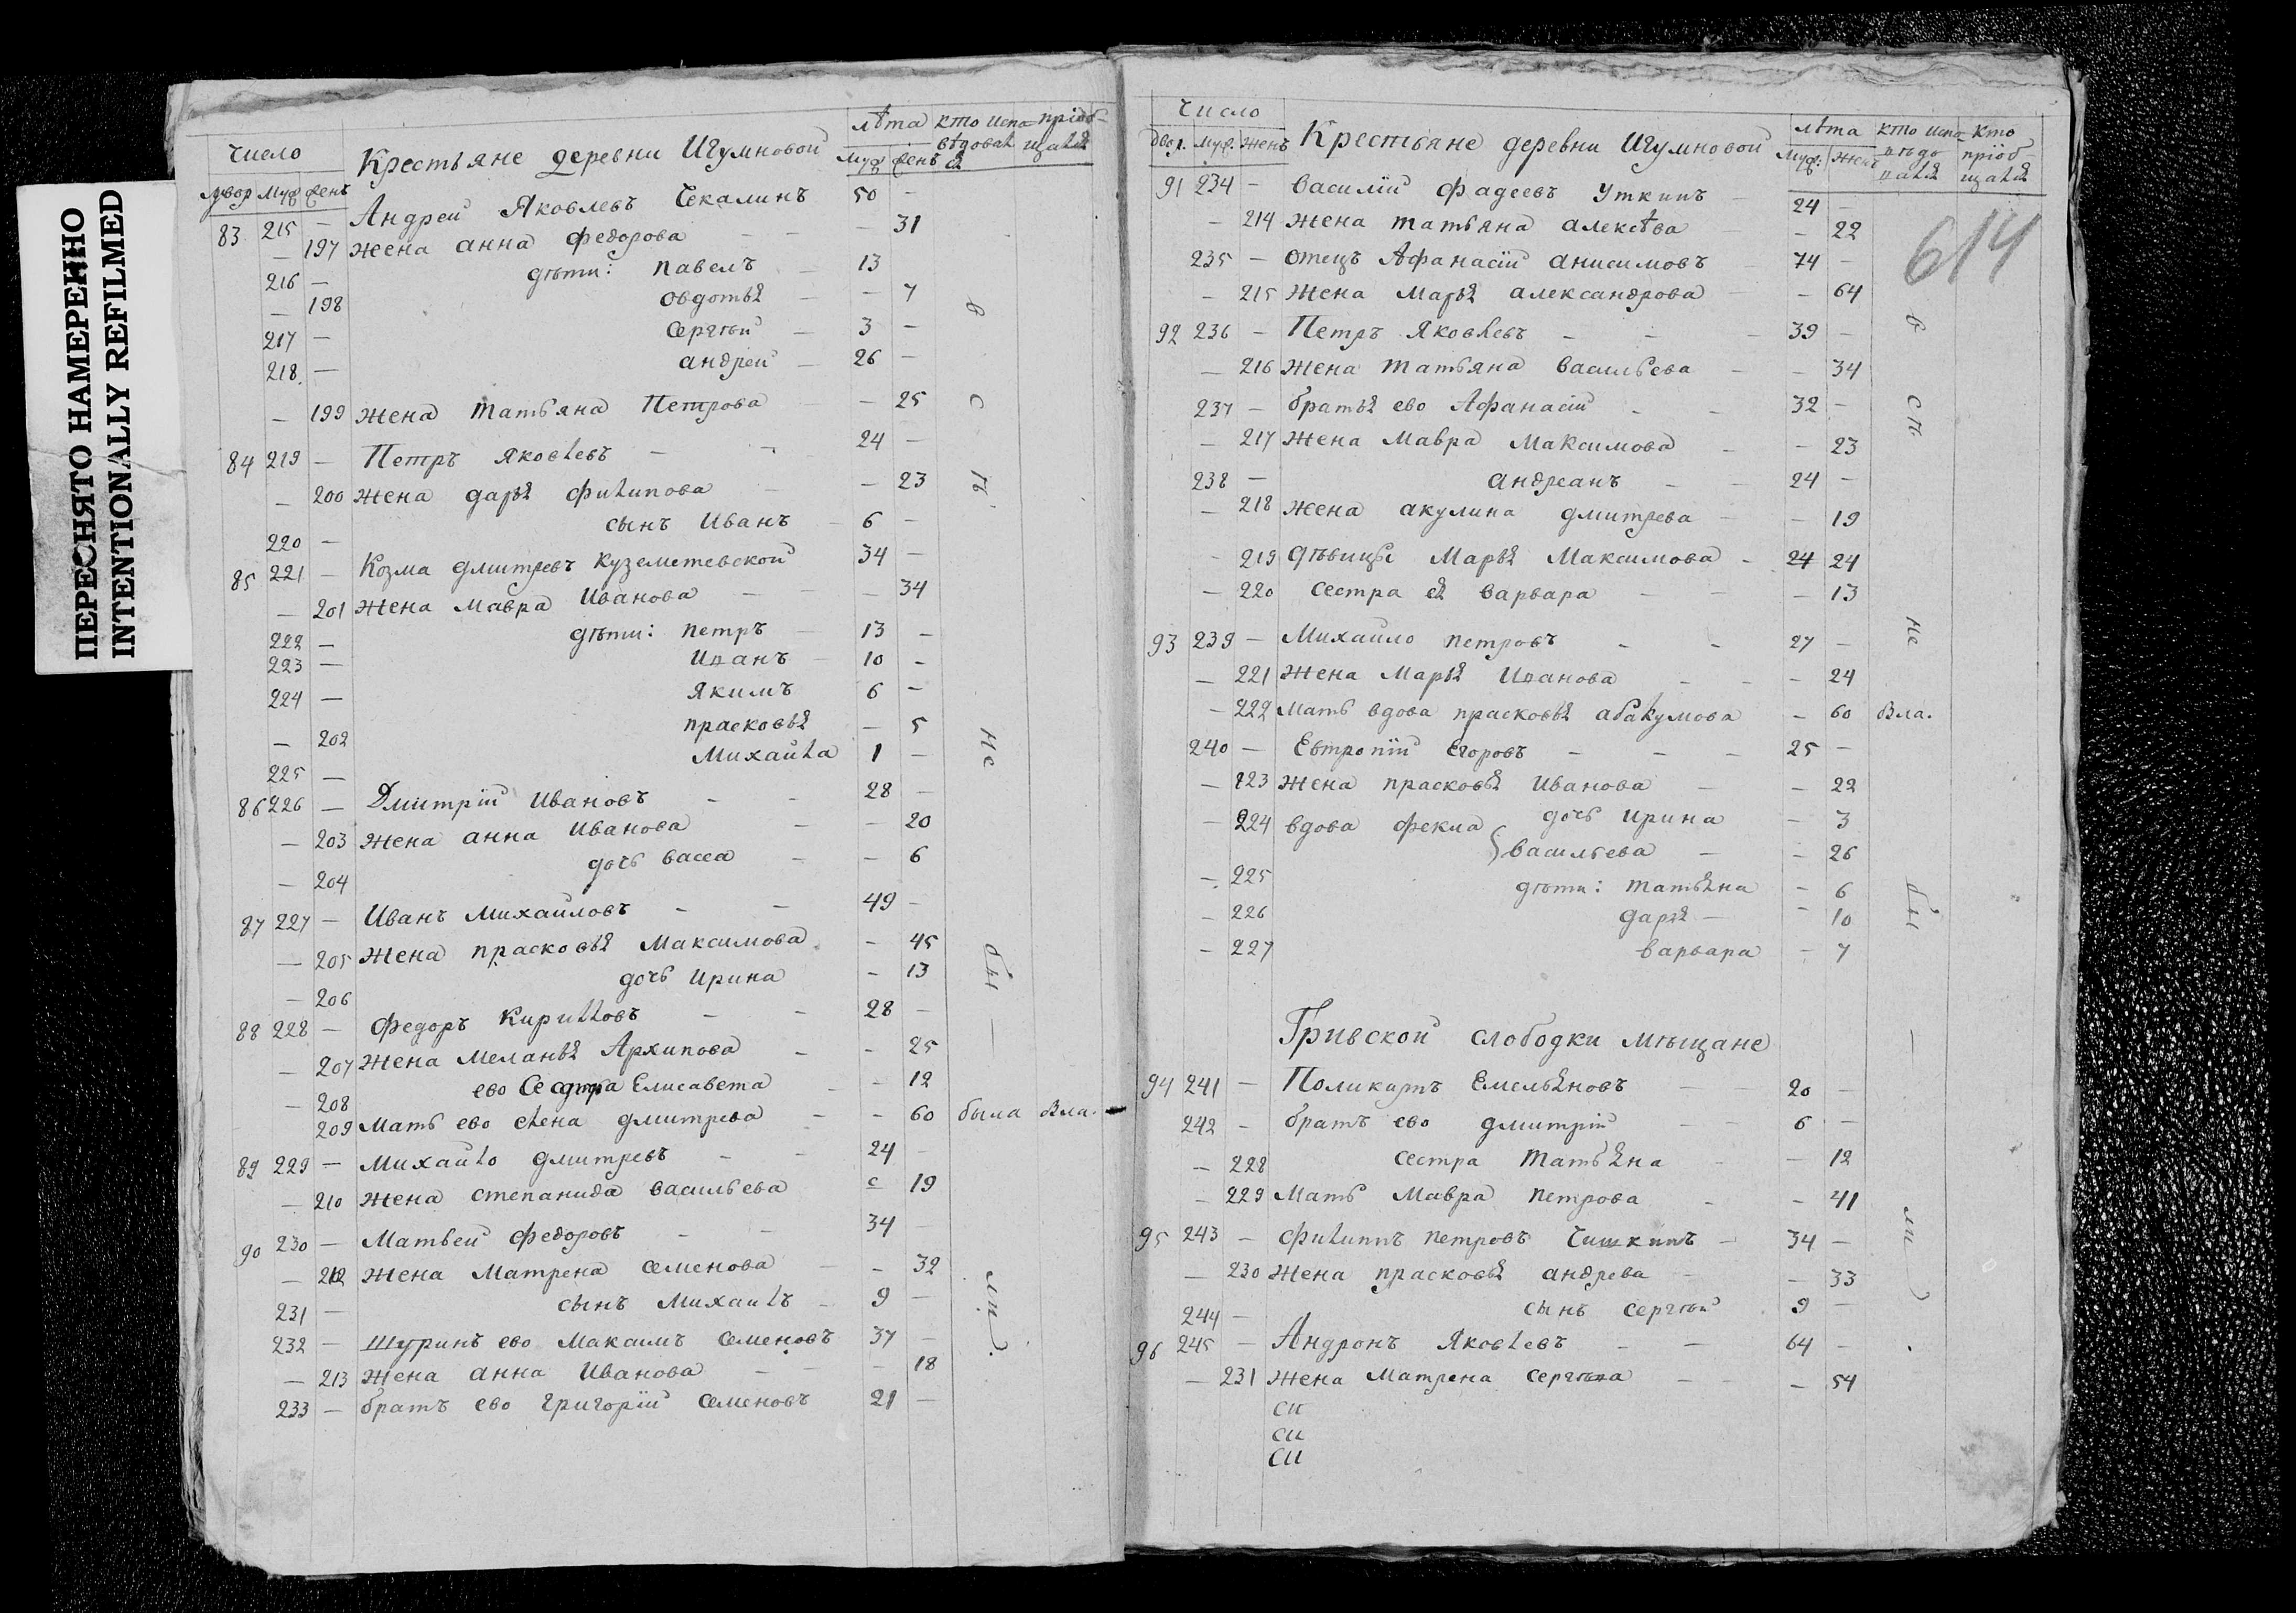 ПЕРЕСНЯТО НАМЕРЕННО
INTENTIONALLY REFILMED
Число Крестьяне деревни Игумновой лѣта кто испо- приоб-
двор муж женъ муж женъ вѣдовался щался
83 215 — Андреи Яковлевъ Чекалинъ 50 —
— 197 жена анна федорова — 31
216 — дѣти: павелъ 13
— 198 овдотья — 7
217 — сергѣй 3 —
218 — андреи 26 —
— 199 жена татьяна Петрова — 25
84 219 — Петръ яковлевъ 24 —
— 200 жена дарья филипова — 23
220 — сынъ иванъ 6 —
85 221 — Козма дмитревъ куземетевской 34 —
— 201 жена мавра иванова — 34
222 — дѣти: петръ 13 —
223 — иванъ 10 —
224 — якимъ 6 —
— 202 прасковья — 5
225 — михаила 1 —
86 226 — Дмитрiй ивановъ 28 —
— 203 жена анна иванова — 20
— 204 дочь васса — 6
87 227 — Иванъ михаиловъ 49 —
— 205 жена прасковья максимова — 45
— 206 дочь ирина — 13
88 228 — федоръ кириловъ 28 —
— 207 жена меланья Архипова — 25
— 208 ево сестра елисавета — 12
209 мать ево елена дмитрева — 60 была Вла.
89 229 — михаило дмитревъ 24 —
— 210 жена степанида васильева с 19
90 230 — матвеи федоровъ 34 —
— 212 жена матрена семенова — 32
231 — сынъ михаилъ 9 —
232 — шуринъ ево максимъ семеновъ 37 —
— 213 жена анна иванова — 18
233 — братъ ево григорiй семеновъ 21 —
в с п. не бы — ли).
Число Крестьяне деревни Игумновой лѣта кто испо- кто
двор. муж. женъ муж: женъ вѣдо вался приоб щался
614
91 234 — василiй фадеевъ уткинъ 24 —
— 214 жена татьяна алексѣва — 22
235 — отецъ Афанасiй анисимовъ 74 —
— 215 жена марья александрова — 64
92 236 — Петръ яковлевъ 39 —
— 216 жена татьяна васильева — 34
237 — братья ево Афанасiй 32 —
— 217 жена мавра максимова — 23
238 — андреанъ 24 —
— 218 жена акулина дмитрева — 19
— 219 дѣвицы марья максимова 24 24
— 220 сестра ея варвара — 13
93 239 — Михаило петровъ 27 —
— 221 жена марья иванова — 24
— 222 мать вдова прасковья абакумова — 60 Вла.
240 — Евтропiй егоровъ 25 —
— 223 жена прасковья иванова — 22
— 224 вдова фекла дочь ирина — 3
васильева — 26
— 225 дѣти: татьяна — 6
— 226 дарья — 10
— 227 варвара — 7
Гривской слободки мѣщане
94 241 — Поликарпъ емельяновъ 20 —
242 — братъ ево дмитрiй 6 —
— 228 сестра татьяна — 12
— 229 мать мавра петрова — 41
95 243 — филипъ петровъ Чишкинъ 34 —
— 230 жена прасковья андрева — 33
244 — сынъ сергѣй 9 —
96 245 — Андронъ яковлевъ 64 —
— 231 жена матрена сергѣва — 54
си
си
си
в сп. не бы — ли).